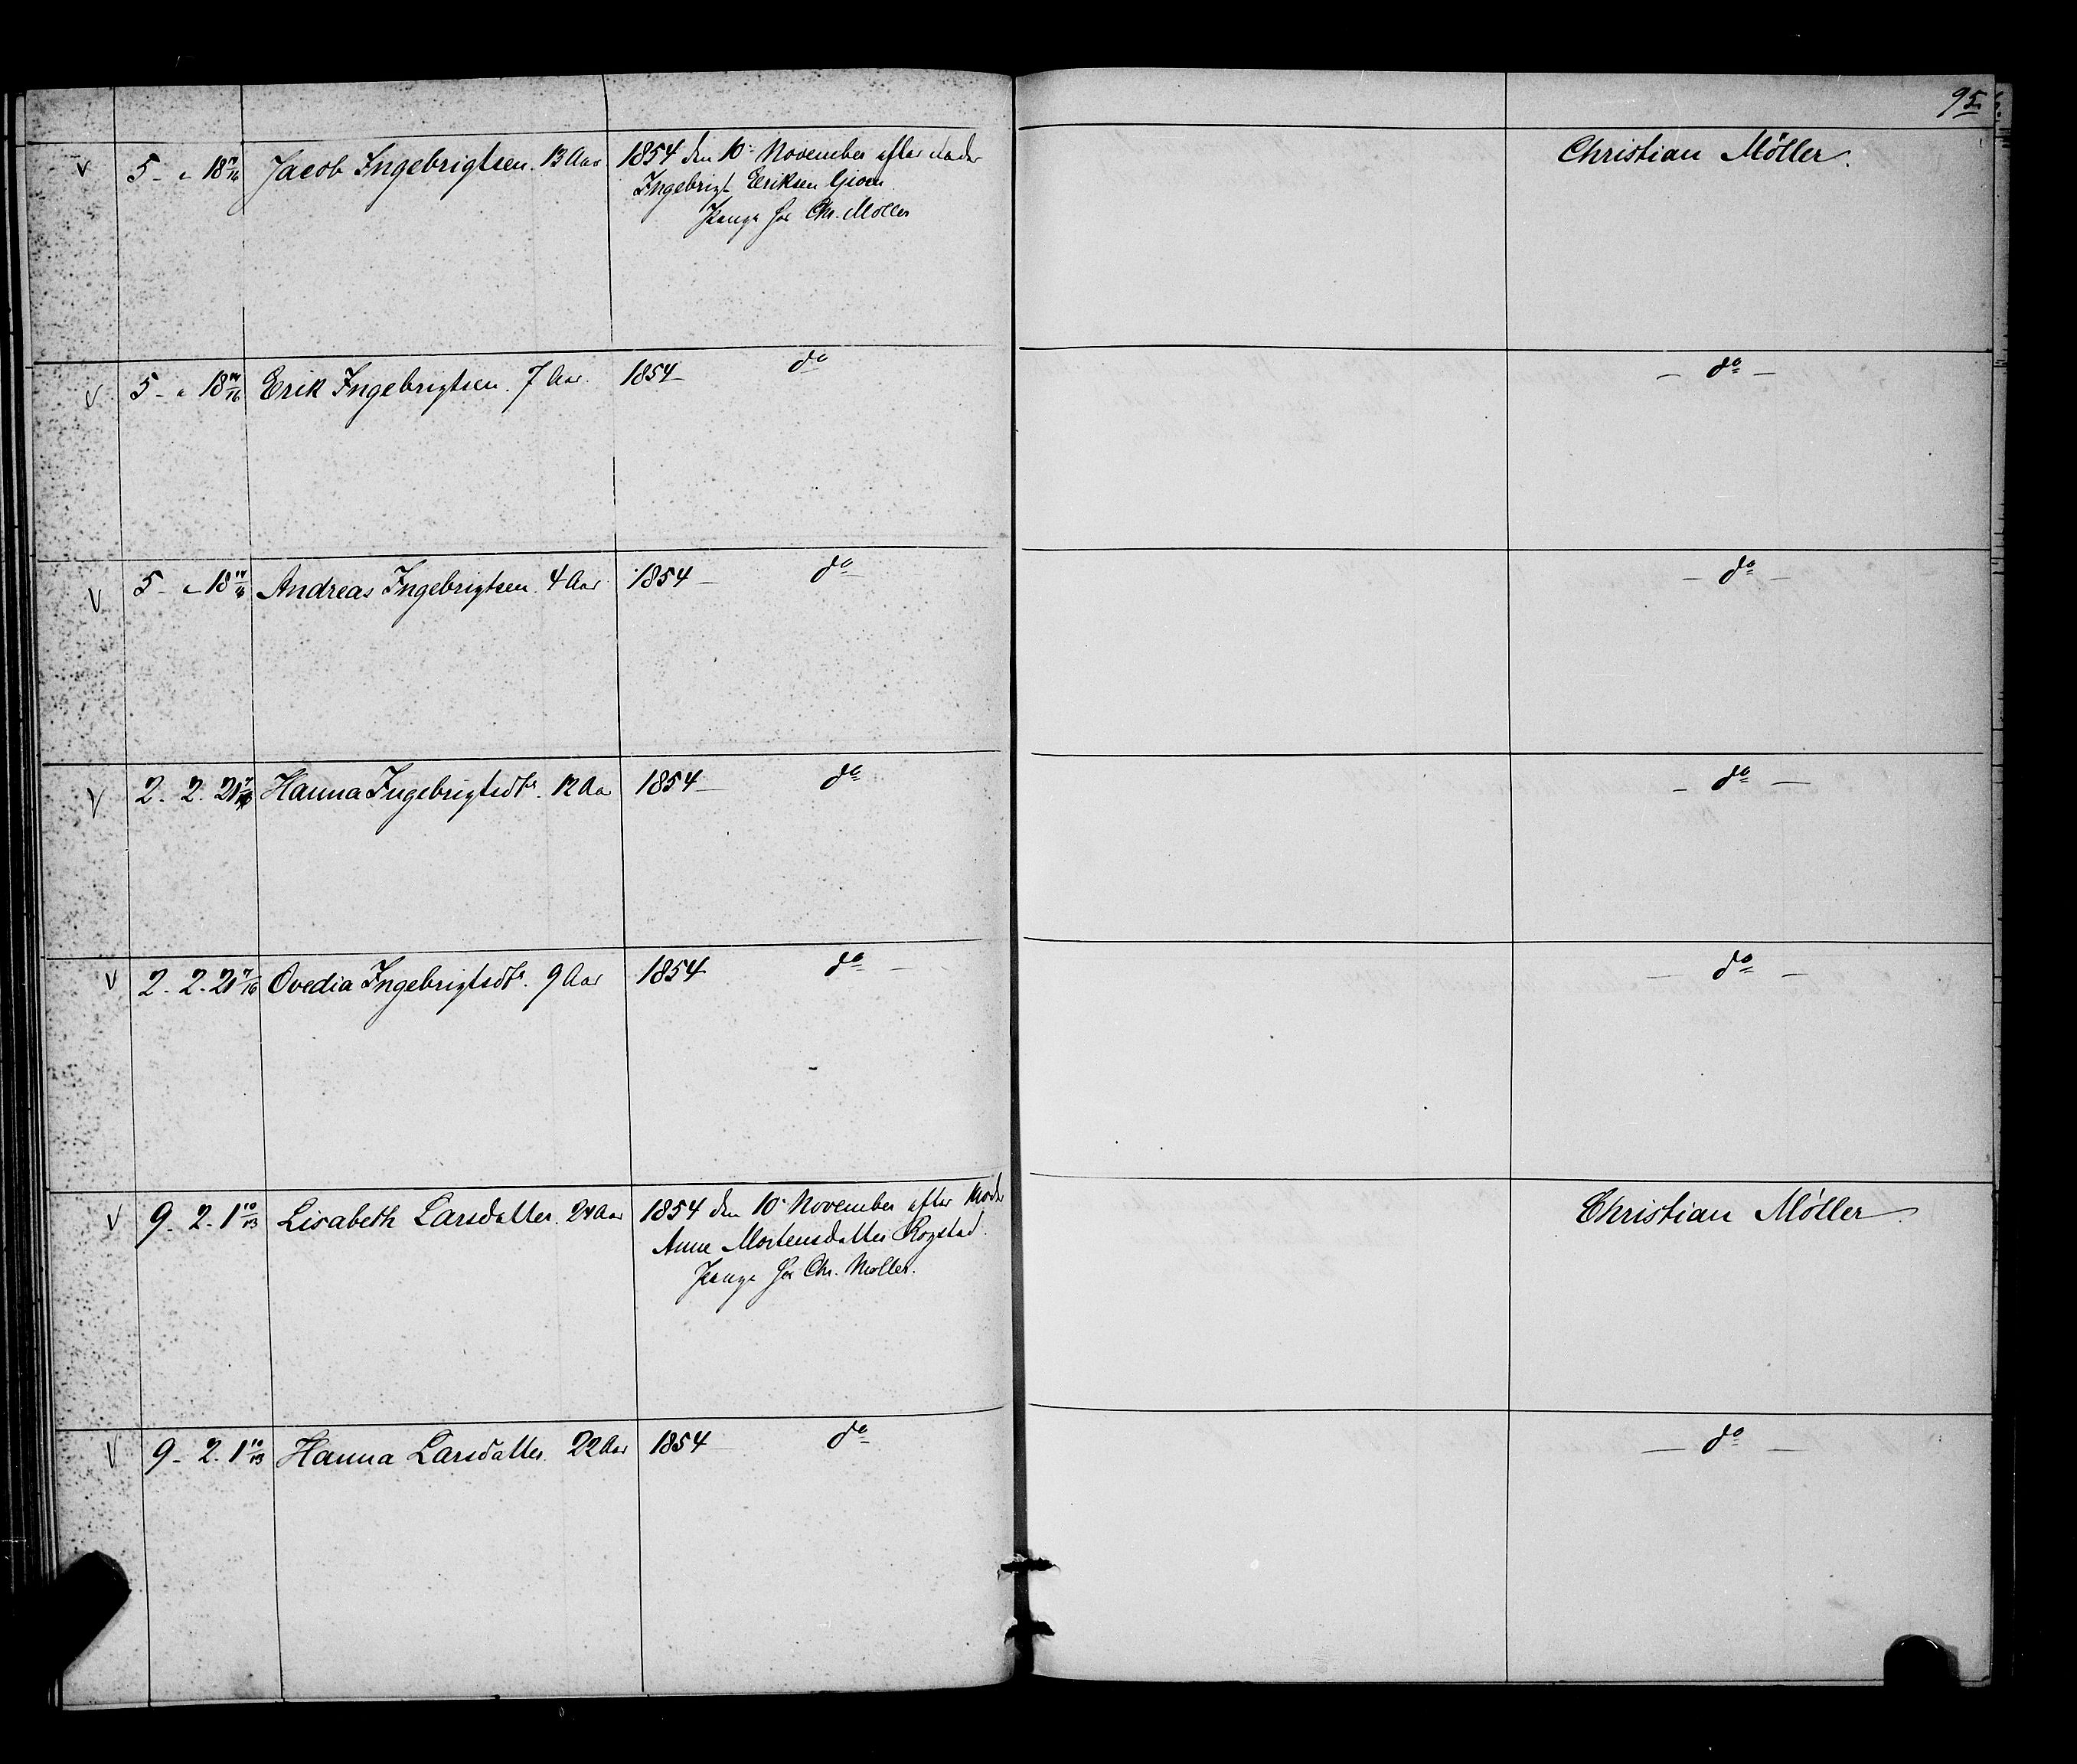 95
V 5 - " 18 11/16 Jacob Ingebrigtsen. 13 Aar 1854 den 10 November efter Fader Christian Möller.
Ingebrigt Eriksen
Penge hos Chr. Möller
V 5 - " 18 11/16 Erik Ingebrigtsen. 7 Aar. 1854 - do - do -
V 5 - " 18 11/16 Andreas Ingebrigtsen. 4 Aar 1854 - do - do -
V 2. 2. 21 7/16 Hanna Ingebrigtsdtr. 12 Aa 1854 - do - do -
V 2. 2. 21 7/16 Ovedia Ingebrigtsdtr. 9 Aar 1854 do - - do -
V 9. 2. 1 10/13 Lisabeth Larsdatter. 24 Aar 1854 den 10 November efter Moder Christian Möller.
Anne Mortensdatter Rogstad.
Penge hos Chr. Möller.
V 9 - 2. 1 10/13 Hanna Larsdatter. 22 Aar 1854 - do - do -